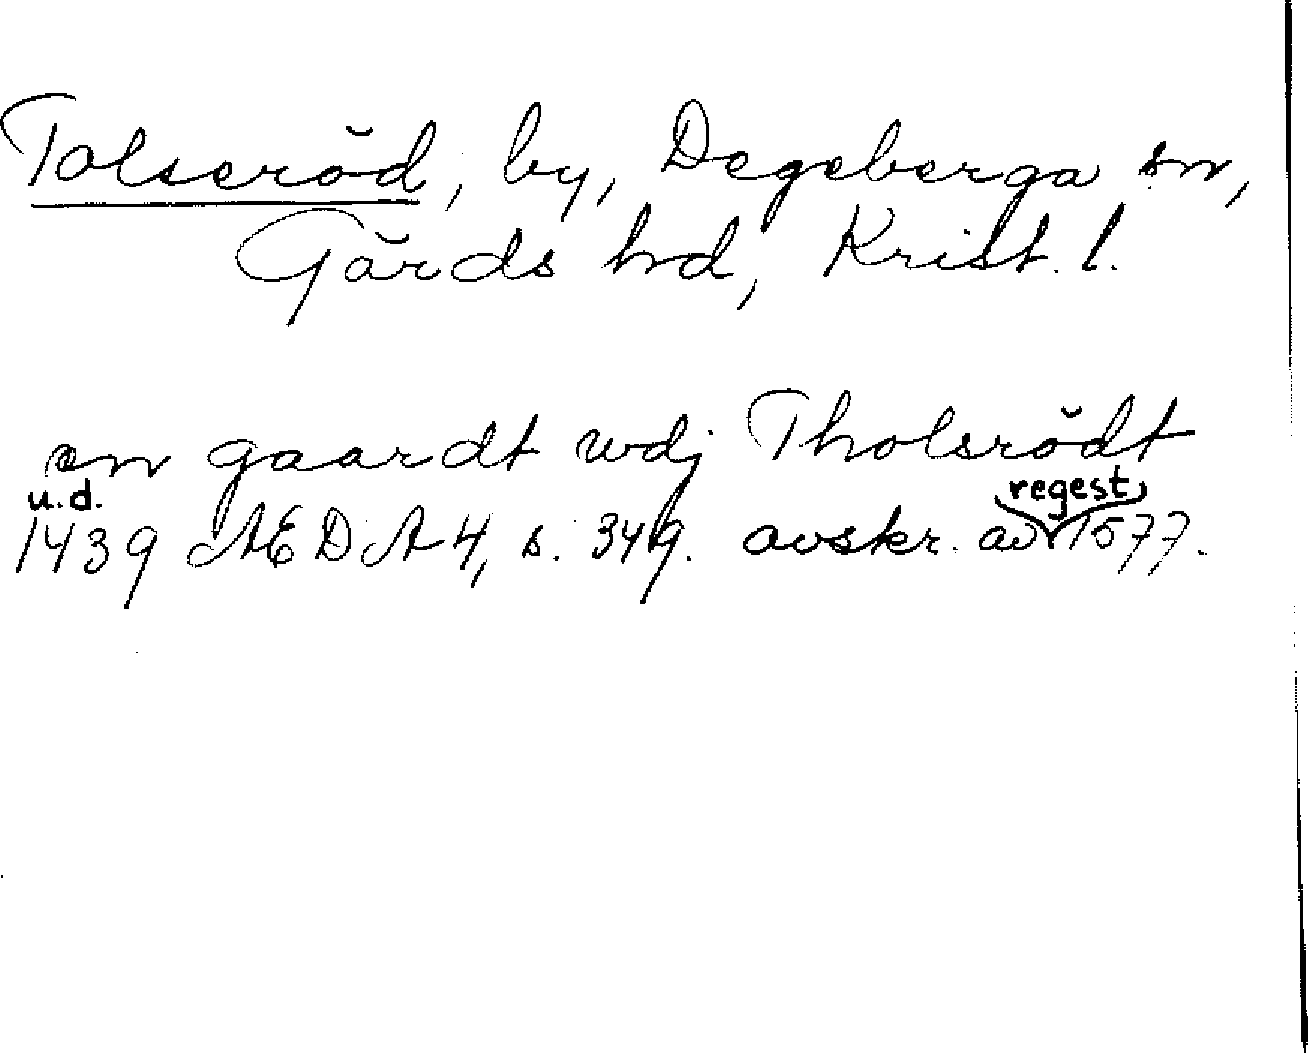 Tolseröd, by, Degeberga sn,
Gärds hd, Krist. l.
en gaardt wdj Tholsrödt
u.d.
1439 ÆDA 4, s. 349. avskr. av regest 1577.